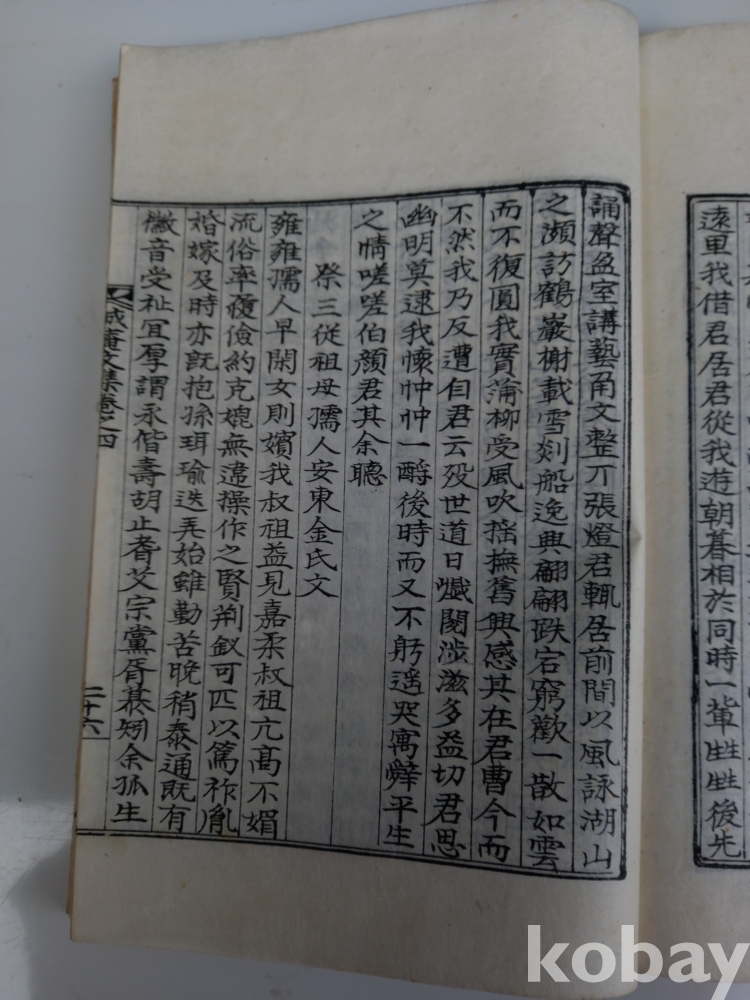 遠里我借君居君從我遊朝暮相於同時一輩甡甡後先
誦聲盈室講藝角文整丌張燈君輒居前間以風詠湖山
之瀕訪鶴巖榭載雪剡船逸興翩翩跌宕窮歡一散如雲
而不復圓我實蒲柳受風吹搖撫舊興感其在君曹今而
不然我乃反遭自君云歿世道日爞閱涉滋多益切君思
幽明莫逮我懷忡忡一酹後時而又不躬遥哭寓辤平生
之情嗟嗟伯顔君其余聽
祭三從祖母孺人安東金氏文
雍雍孺人早閑女則嬪我叔祖益見嘉柔叔祖亢高不媚
流俗率履儉約克媲無違操作之賢荊釵可匹以篤祚胤
婚嫁及時亦旣抱孫珥瑜迭弄始雖勤苦晚稍泰通既有
徽音受祉宜厚謂永偕壽胡止耆艾宗黨胥慕矧余孤生
文集卷之四
二十六
kobay